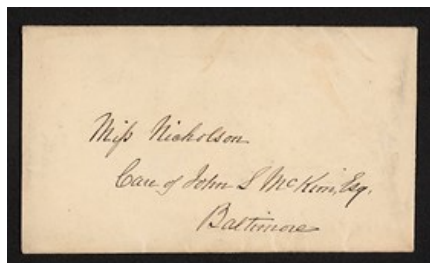 Miss Nicholson
Care of John S McKim, Esq.
Baltimore